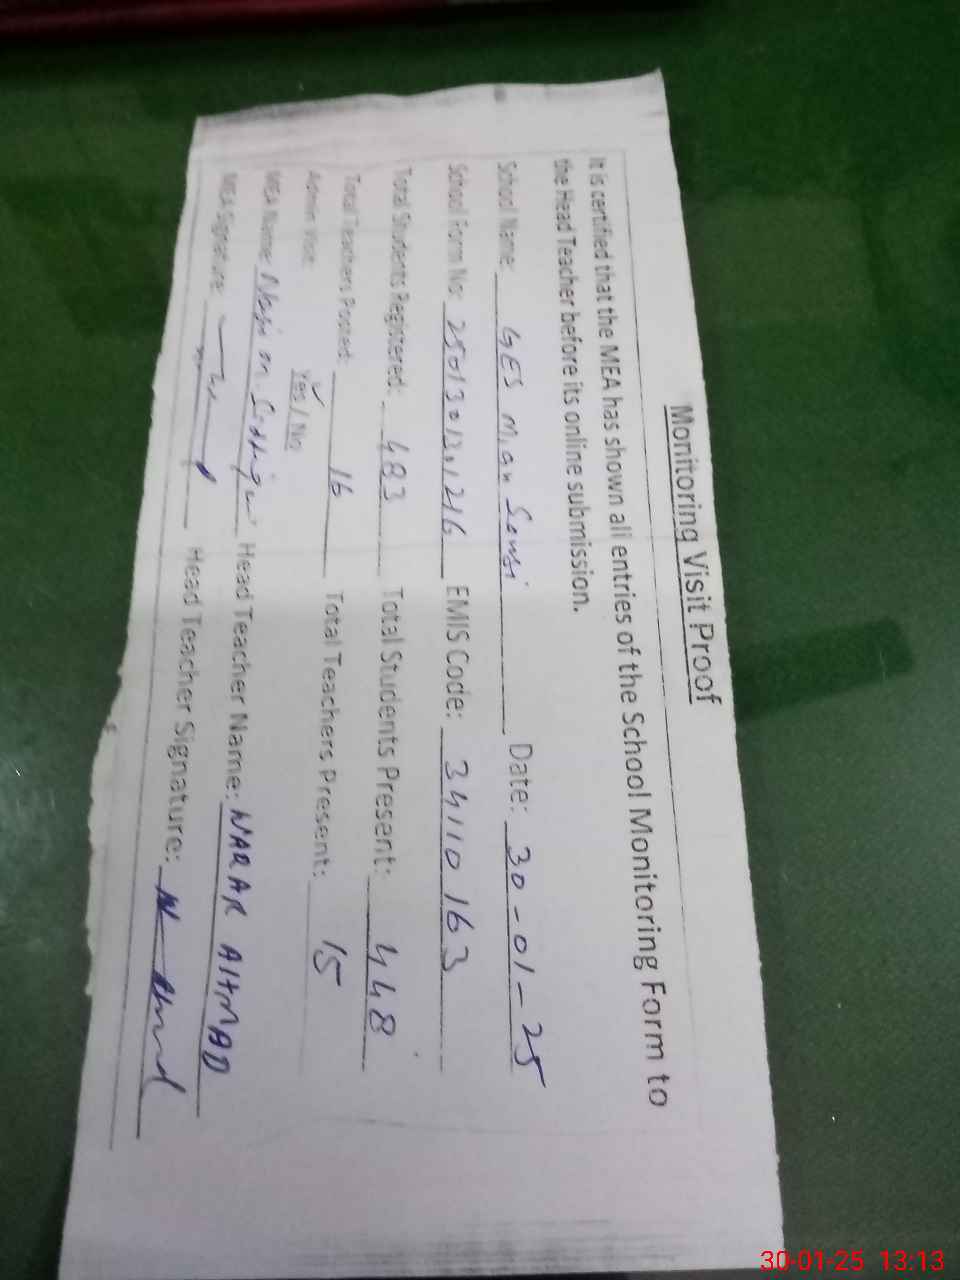 Monitoring Visit Proof
It is certified that the MEA has shown all entries of the School Monitoring Form to
the Head Teacher before its online submission.
School Name: GES Mian Sansi Date: 30-01-25
School Form No: EMIS Code: 34110163
Total Students Registered: 483 Total Students Present: 448
Total Teachers Posted: 16 Total Teachers Present: 15
Admin Visit: Yes / No
MEA Name: Head Teacher Name: AHMAD
MEA Signature: Head Teacher Signature:
30-01-25 13:13